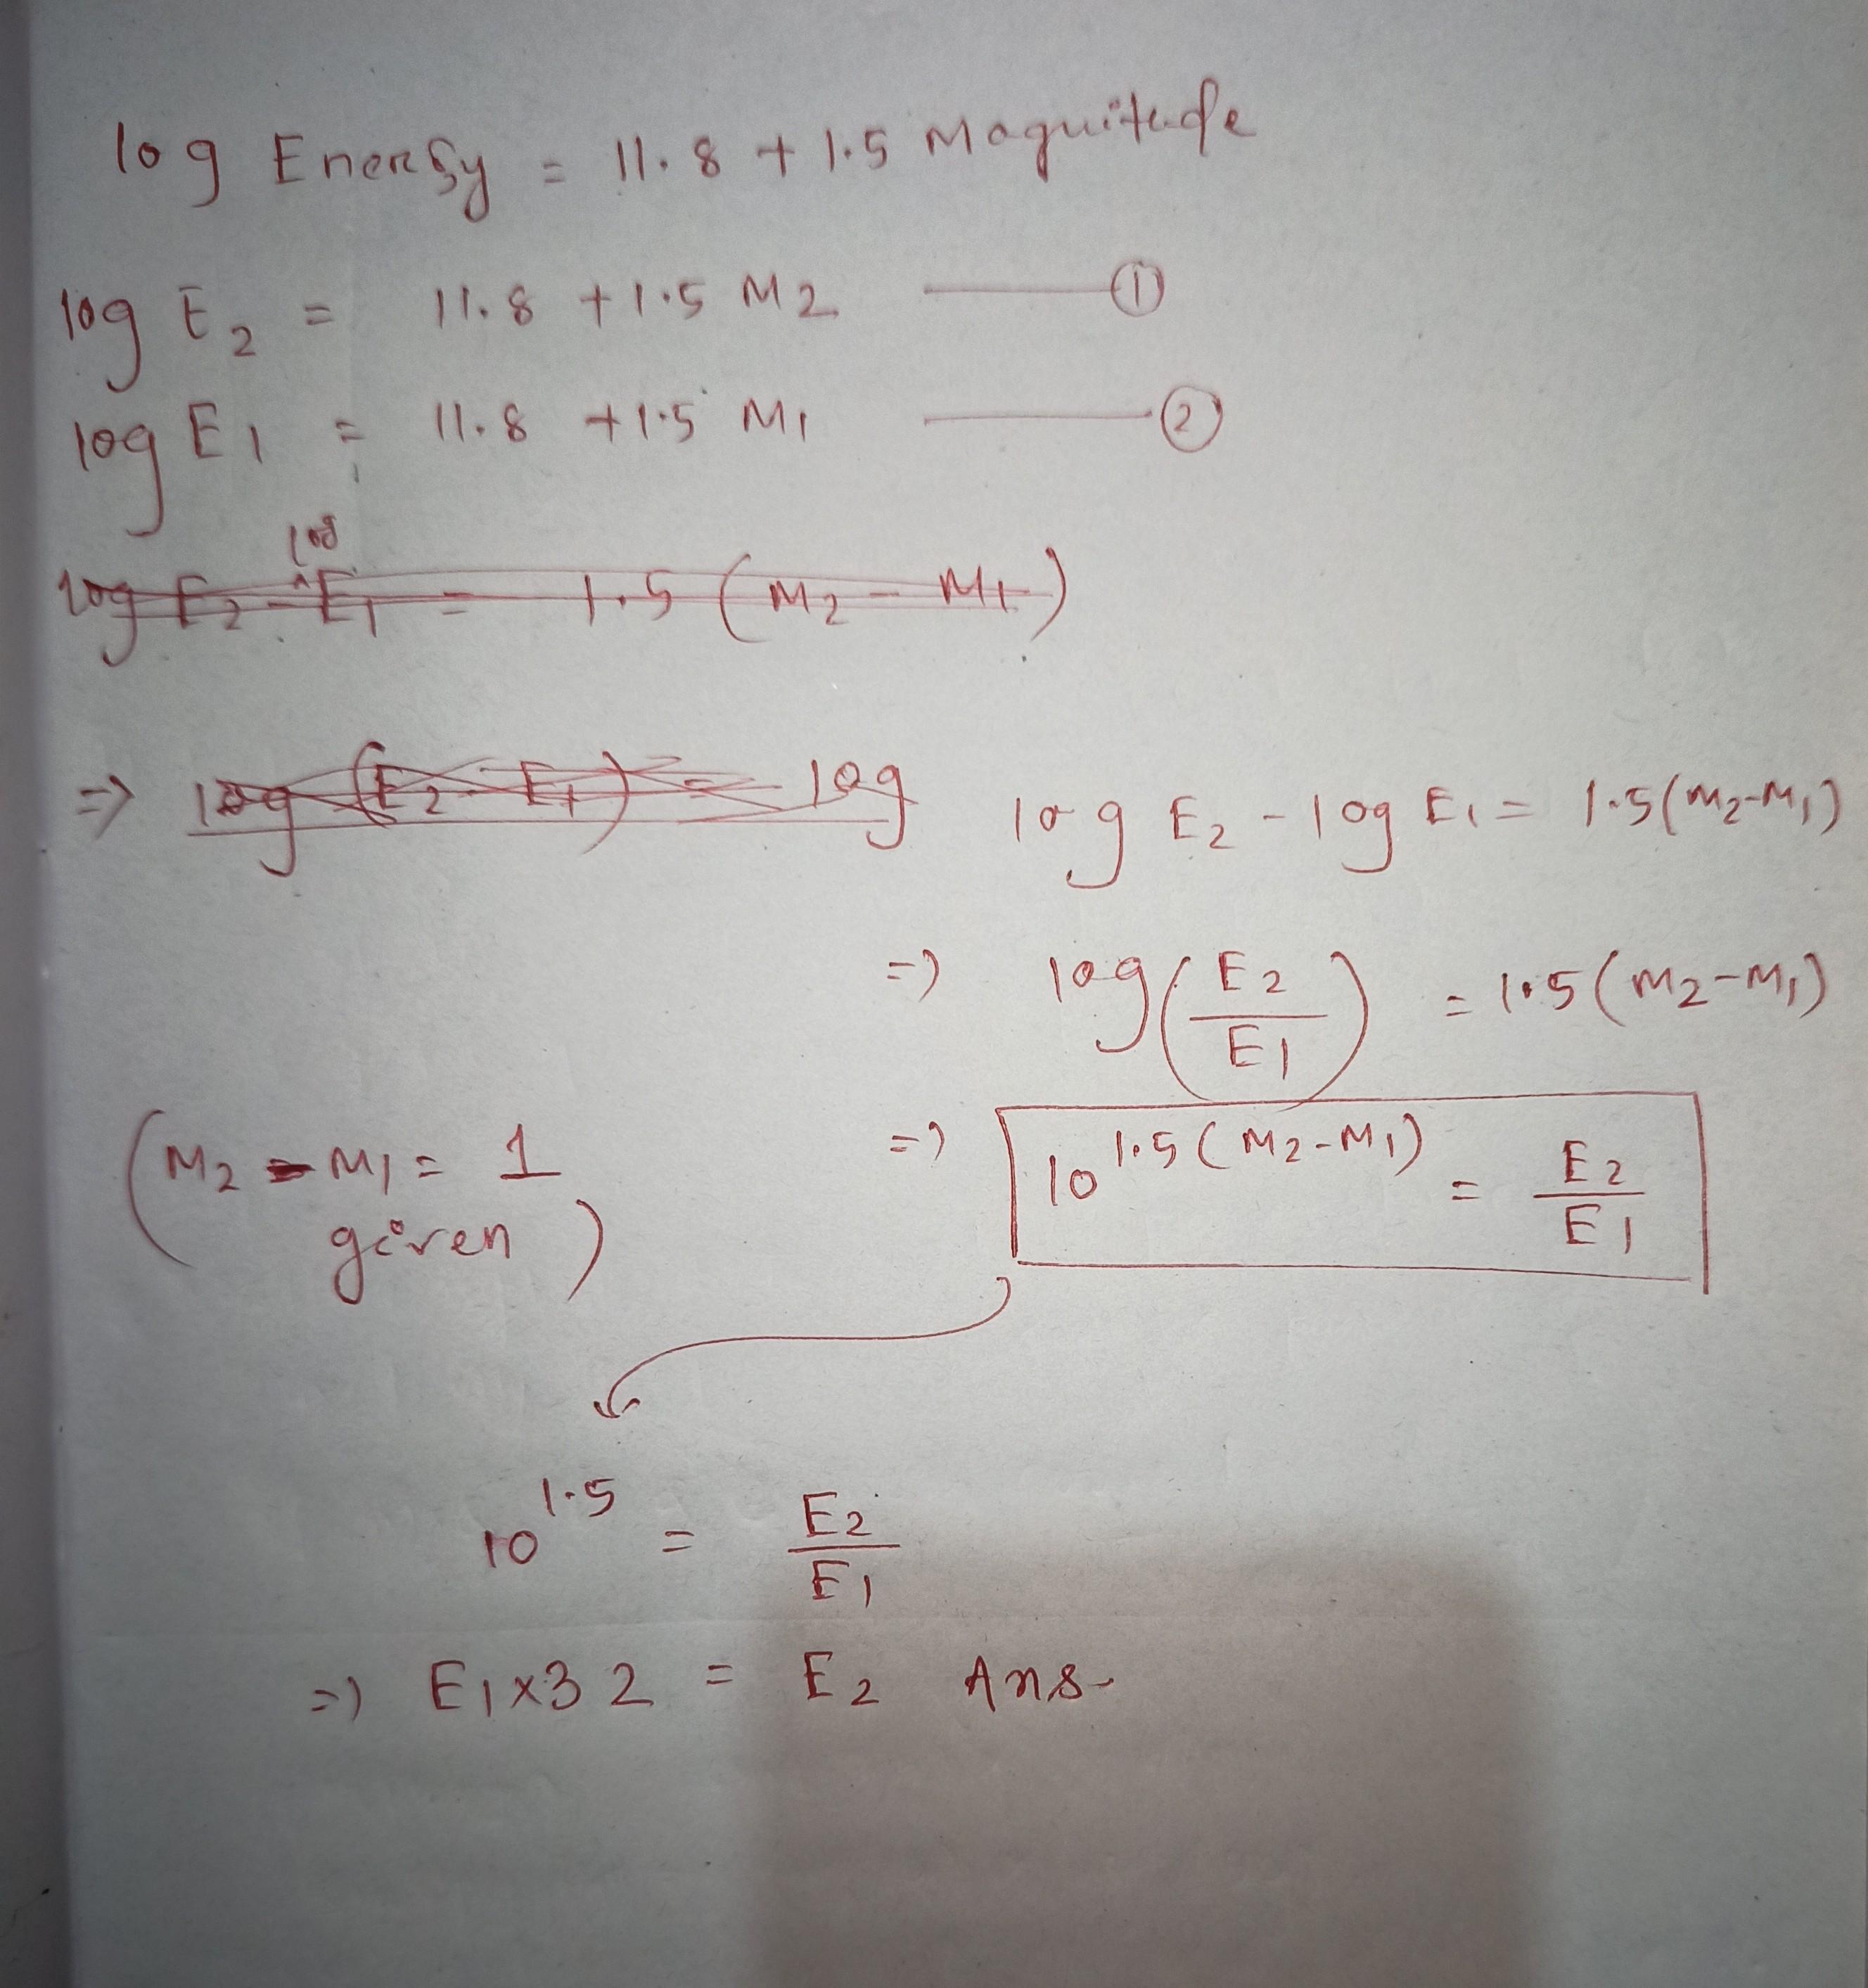 log Energy = 11.8 + 1.5 Magnitude
log E2 = 11.8 + 1.5 M2 ——— ①
log E1 = 11.8 + 1.5 M1 ——— ②
log E2 - log E1 = 1.5 (M2 - M1)
=> log (E2 - E1) = log
log E2 - log E1 = 1.5(M2-M1)
=> log(E2/E1) = 1.5(M2-M1)
(M2 - M1 = 1 given)
=> 10^1.5(M2-M1) = E2/E1
10^1.5 = E2/E1
=> E1x32 = E2 Ans.